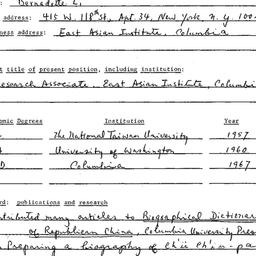 : Bernadette L.
address: 415 W. 118th St, Apt. 34, New York, N.Y. 100
ness address: East Asian Institute, Columbia
t title of present position, including institution:
esearch Associate, East Asian Institute, Columbi
emic Degrees Institution Year
The National Taiwan University 1957
University of Washington 1960
D Columbia 1967
rd: publications and research
tributed many articles to Biographical Dictionar
of Republican China, Columbia University Pres
Preparing a biography of Ch'ü Ch'iu-pa